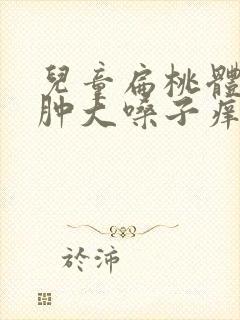 兒童扁桃體
肿大嗓子痒
於沛